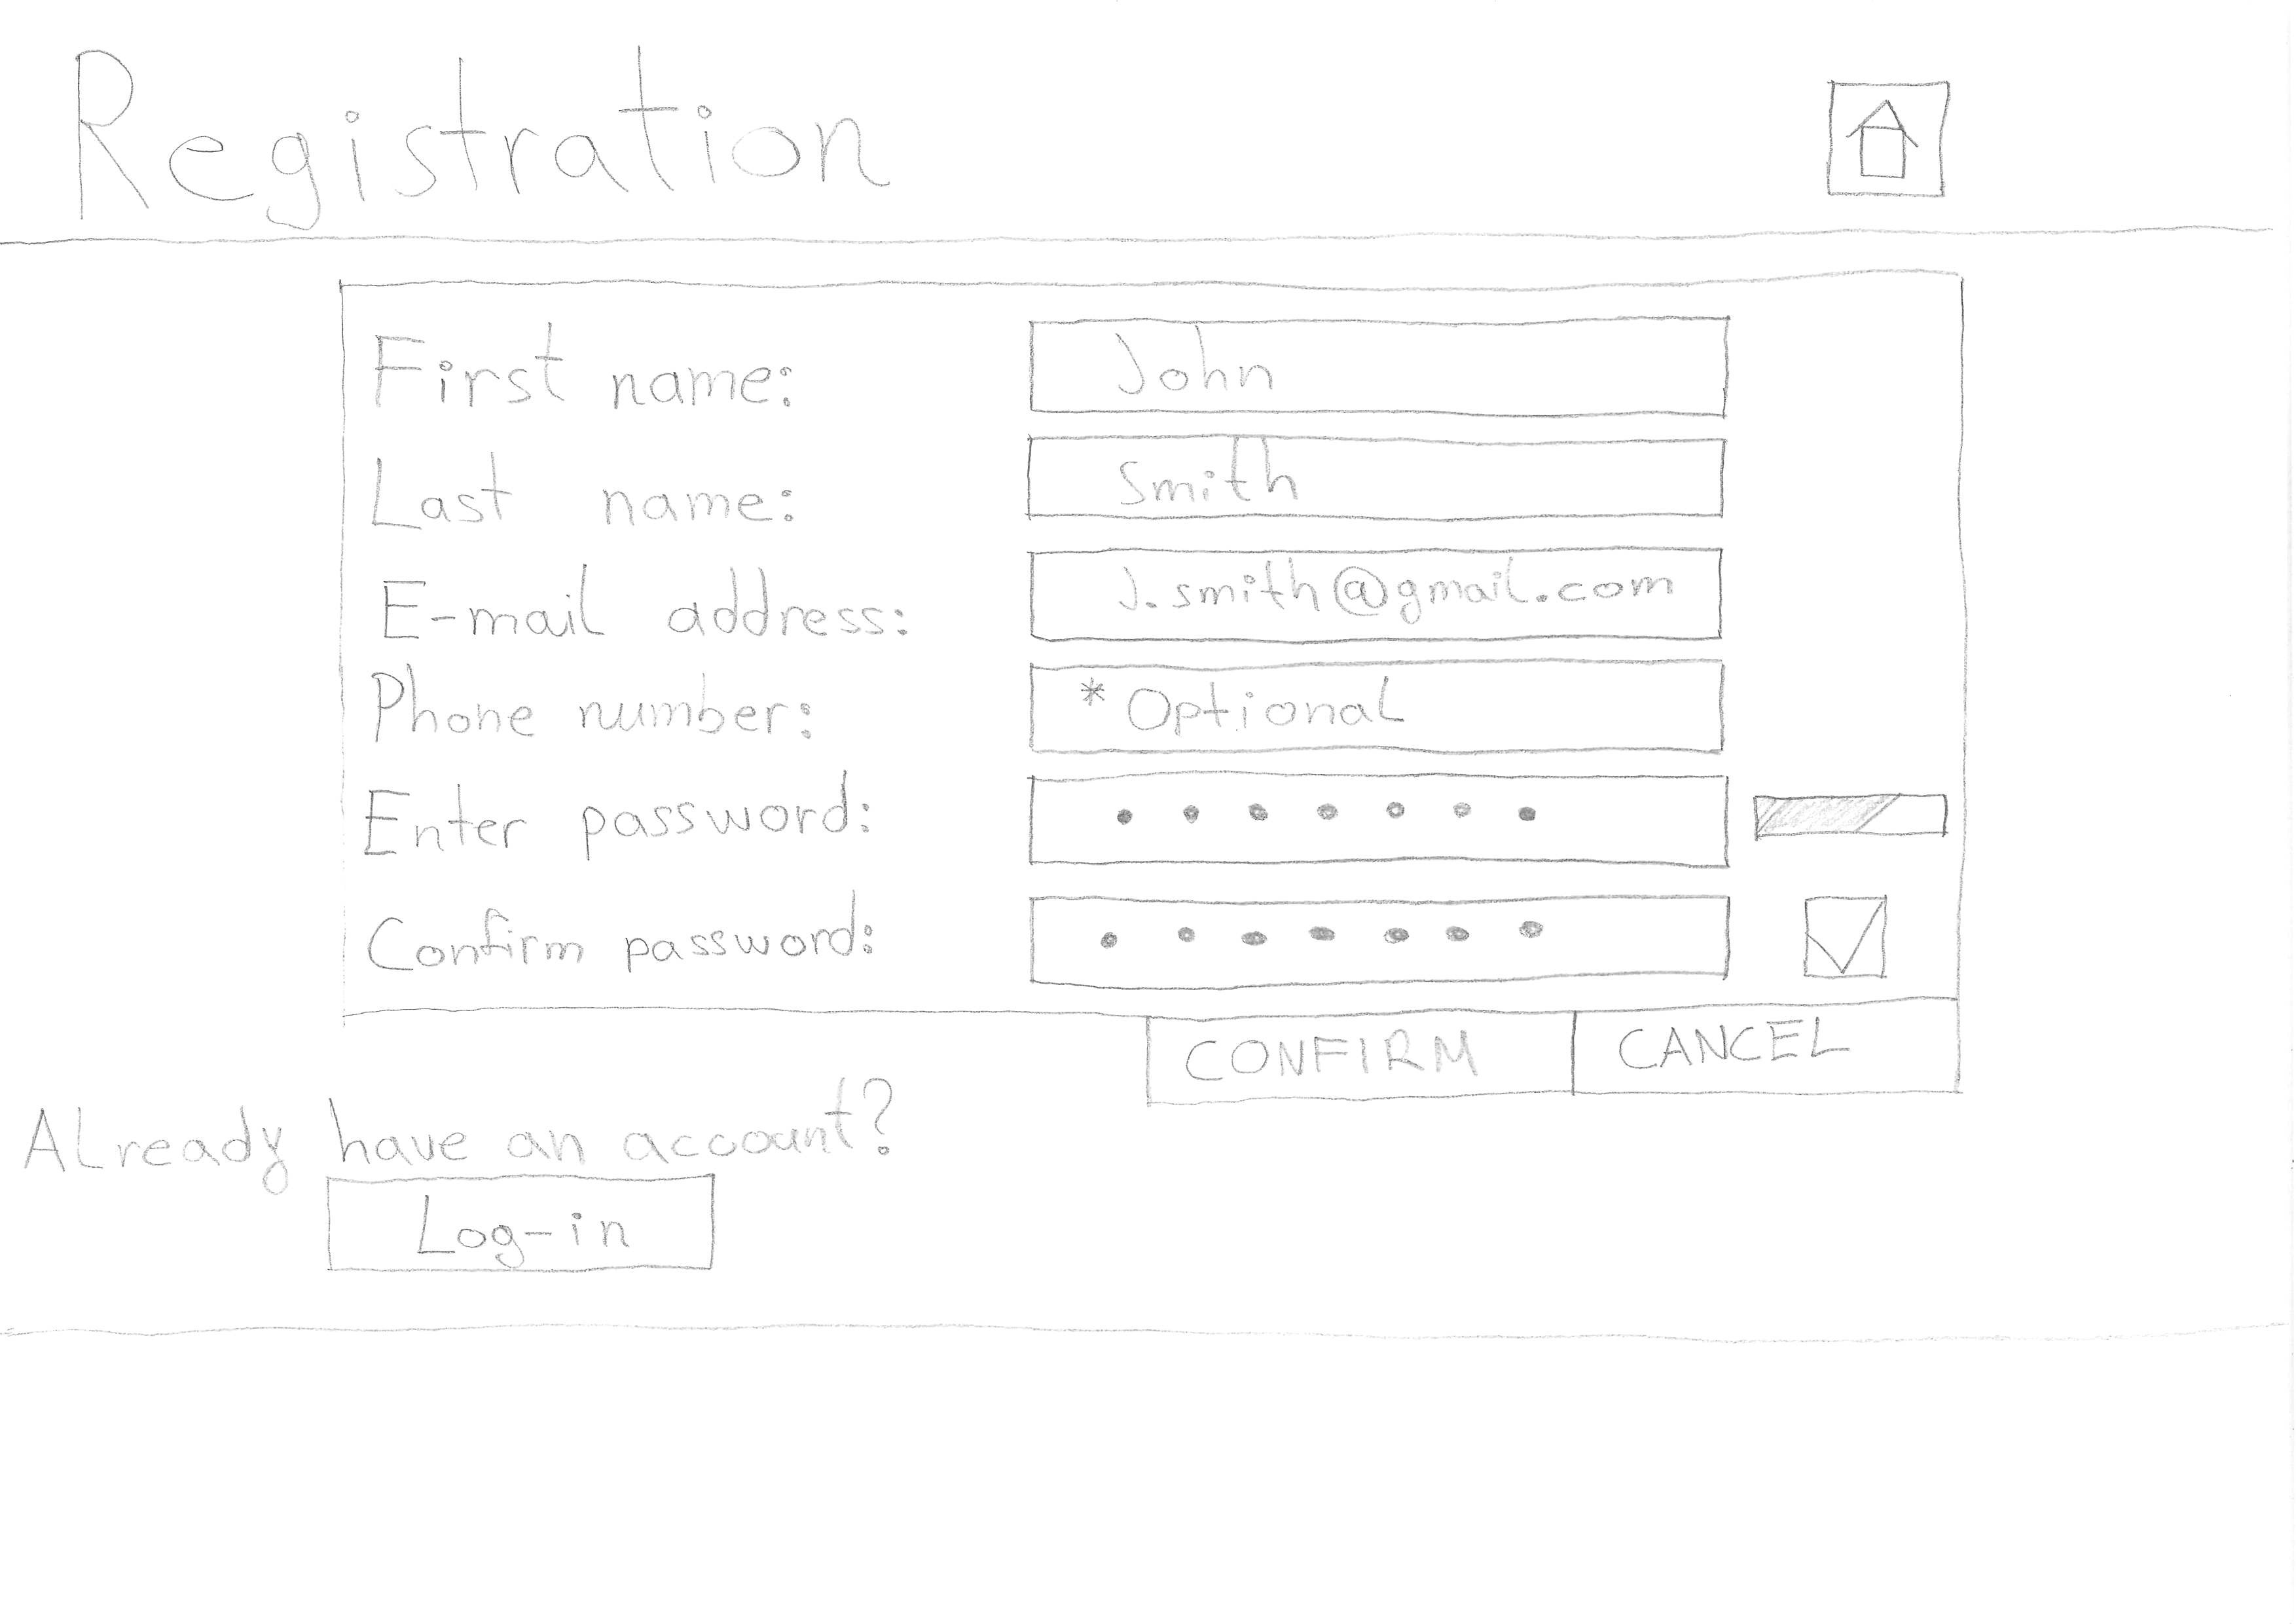 Registration
First name: John
Last name: Smith
E-mail address: J.smith@gmail.com
Phone number: * Optional
Enter password: • • • • • • •
Confirm password: • • • • • • •
CONFIRM CANCEL
Already have an account?
Log-in